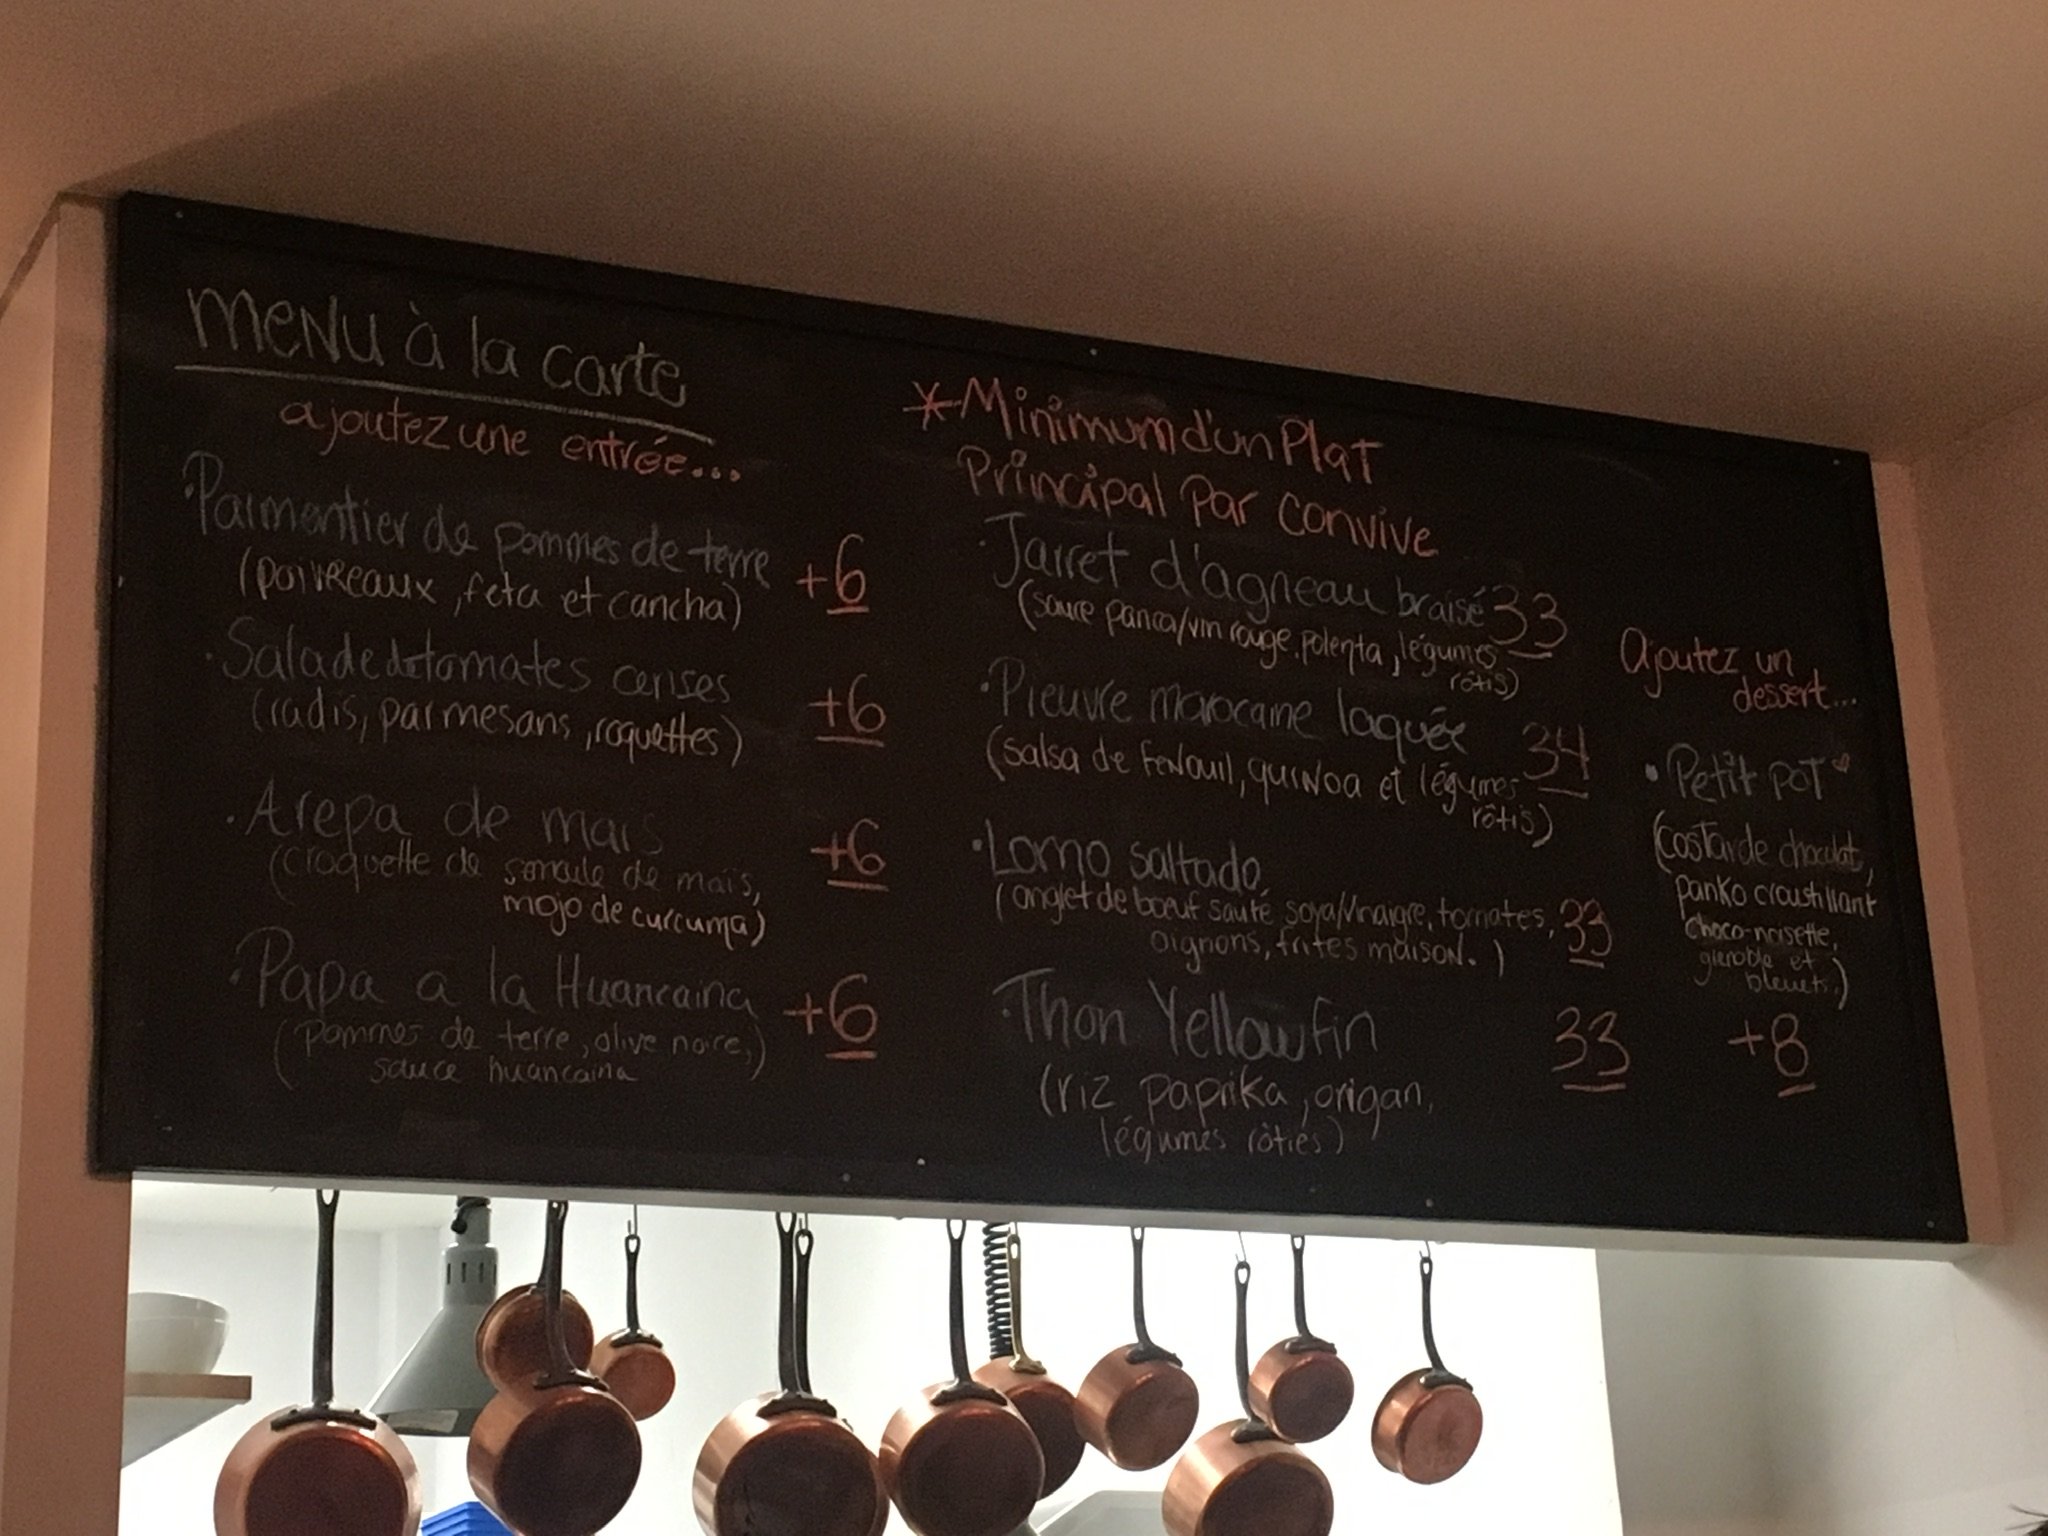 menu à la carte
ajoutez une entrée...
• Parmentier de pommes de terre +6
(poivreaux, feta et cancha)
• Salade de tomates cerises +6
(radis, parmesans, roquettes)
• Arepa de maïs +6
(croquette de semoule de maïs,
mojo de curcuma)
• Papa a la Huancaina +6
(pommes de terre, olive noire,)
sauce huancaina
* Minimum d'un Plat
Principal Par convive
• Jarret d'agneau braisé 33
(sauce panca/vin rouge, polenta, légumes
rôtis)
• Pieuvre marocaine laquée 34
(salsa de fenouil, quinoa et légumes
rôtis)
• Lomo saltado
(onglet de bœuf sauté soya/vinaigre, tomates, 33
oignons, frites maison.)
• Thon Yellowfin 33
(riz paprika, origan,
légumes rôties)
Ajoutez un
dessert...
• Petit pot
(costarde chocolat,
panko croustillant
choco-noisette,
grenoble et
bleuets.)
+8